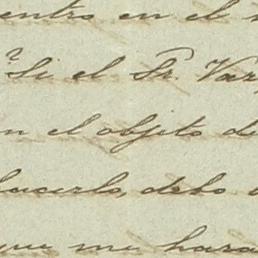 entro en el
? Si el Sr. Var
n el objeto de
hacerlo, debo
que me hara